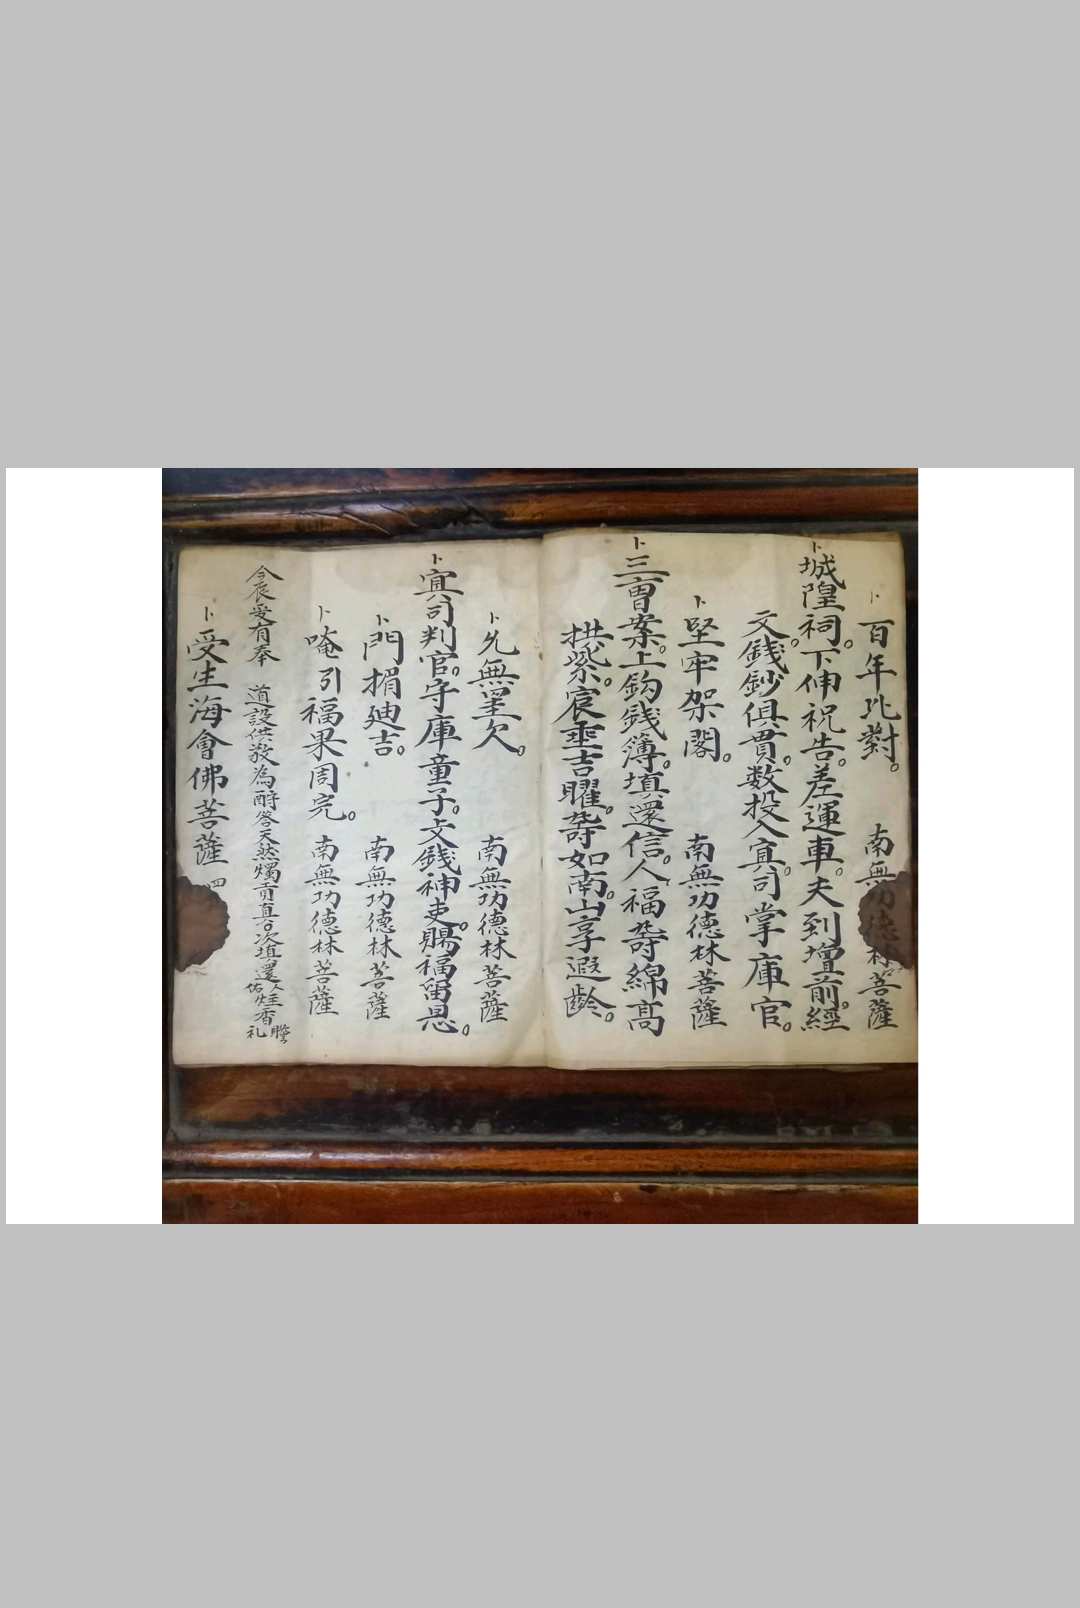 卜百年比對。南無功德林菩薩
卜城隍祠。下伸祝告。差運車。夫到壇前。經
文錢鈔俱貫。数投入冥。司掌庫官。
卜堅牢架閣。南無功德林菩薩
卜三曹案。上鈎錢簿。填還信。人福壽綿高
拱紫。宸垂吉曜。壽如南。山享遐齡。
卜允無罣欠。南無功德林菩薩
卜冥司判官。守庫童子。文錢神吏。賜福留恩。
卜門撋廸吉。南無功德林菩薩
卜唵引福果周完。南無功德林菩薩
今宸爰有奉 道設供敬為酧答天然燭貢真次填還佑人炷香礼
卜受生海會佛菩薩 四